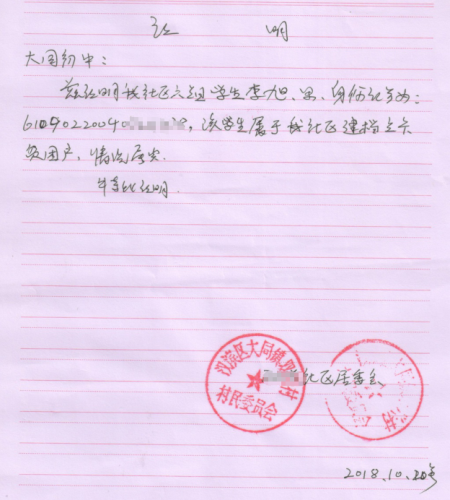 证 明
大同初中：
兹证明我社区六组学生李旭、男、身份证号为：
6109022004，该学生属于我社区建档立卡
贫困户，情况属实.
特此证明.
汉滨区大同镇
村
村民委员会
社区居委会
村
2018.10.20号